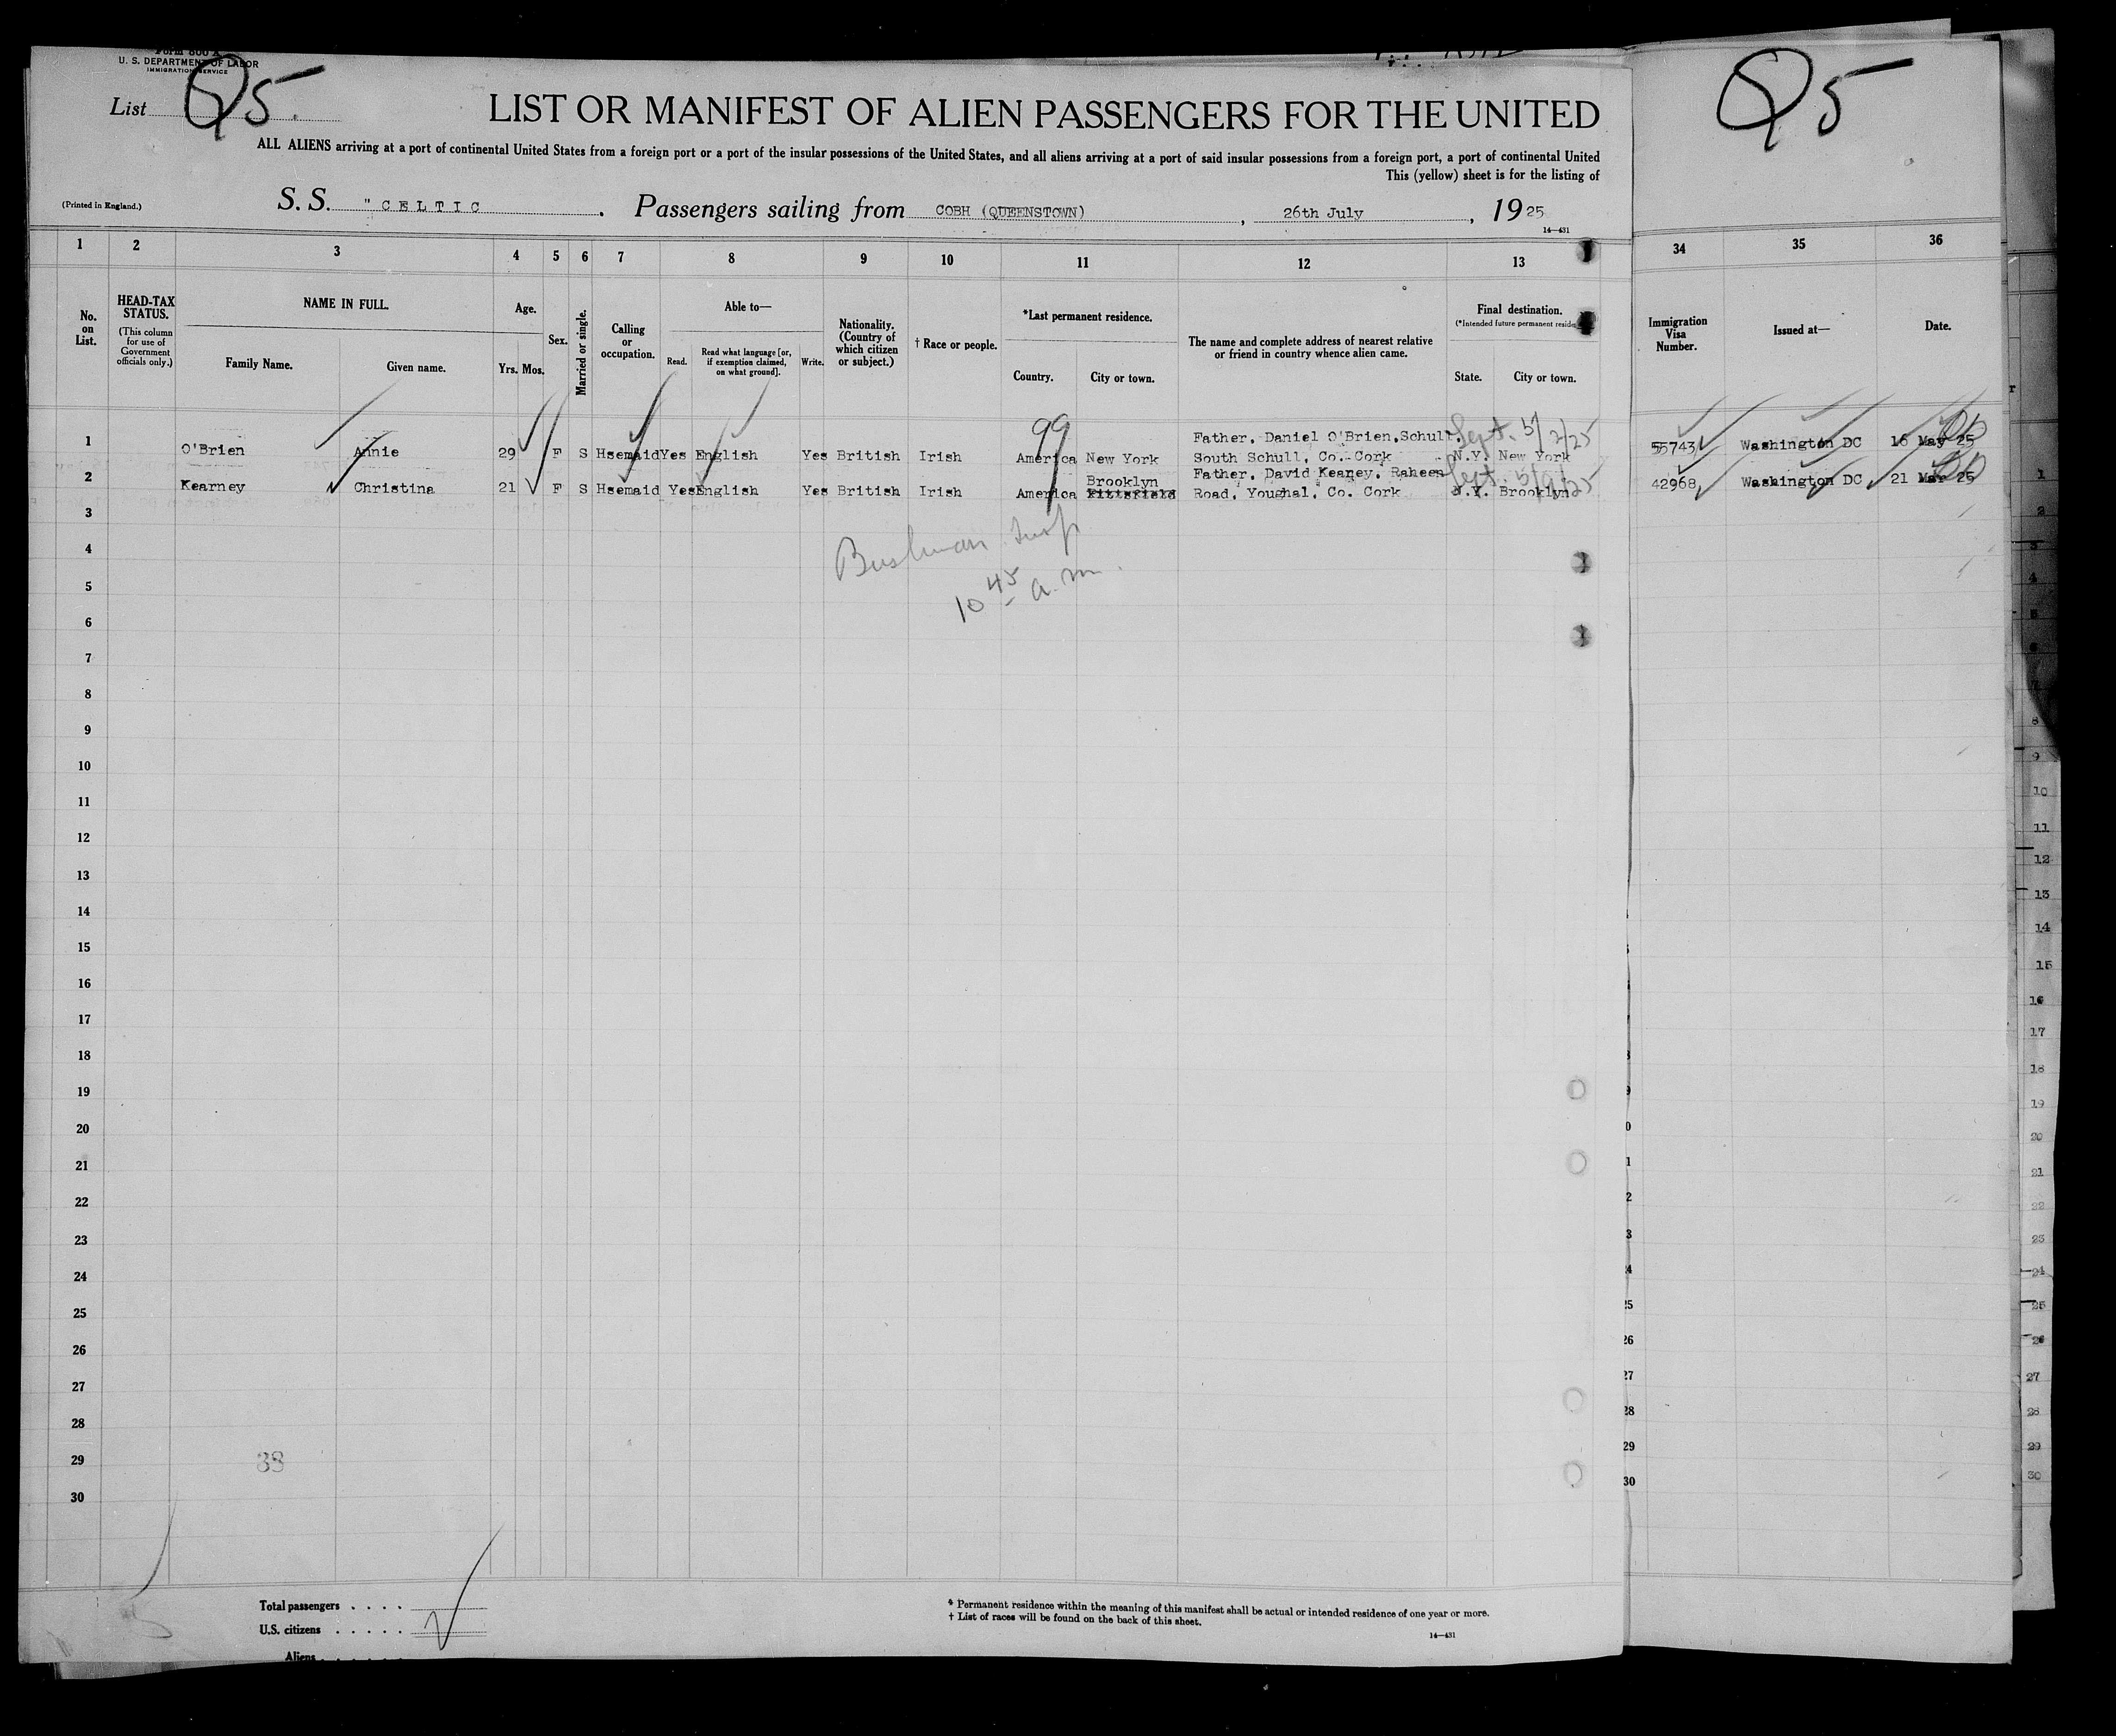 Form 500 A
U. S. DEPARTMENT OF LABOR
IMMIGRATION SERVICE
List Q5.
LIST OR MANIFEST OF ALIEN PASSENGERS FOR THE UNITED
Q5
ALL ALIENS arriving at a port of continental United States from a foreign port or a port of the insular possessions of the United States, and all aliens arriving at a port of said insular possessions from a foreign port, a port of continental United
This (yellow) sheet is for the listing of
(Printed in England.)
S. S. "CELTIC . Passengers sailing from COBH (QUEENSTOWN) , 26th July , 1925
14—431
1 2 3 4 5 6 7 8 9 10 11 12 13 34 35 36
No. on List.
HEAD-TAX STATUS.
(This column for use of Government officials only.)
NAME IN FULL.
Family Name. Given name.
Age.
Yrs. Mos.
Sex.
Married or single.
Calling or occupation.
Able to—
Read. Read what language [or, if exemption claimed, on what ground]. Write.
Nationality. (Country of which citizen or subject.)
† Race or people.
*Last permanent residence.
Country. City or town.
The name and complete address of nearest relative or friend in country whence alien came.
Final destination.
(*Intended future permanent
State. City or town.
Immigration Visa Number.
Issued at—
Date.
99
1 O'Brien Annie 29 F S Hsemaid Yes English Yes British Irish America New York Father, Daniel O'Brien, Schull,
South Schull, Co. Cork N.Y. New York 55743 Washington DC 16 May 25
Sept. 5/2/25
2 Kearney Christina 21 F S Hsemaid Yes English Yes British Irish America Brooklyn Pittsfield Father, David Keaney, Raheen
Road, Youghal, Co. Cork N.Y. Brooklyn 42968 Washington DC 21 Mar 25
Sept. 5/9/25
3
4
Bushman Insp
5
10 45 a.m.
6
7
8
9
10
11
12
13
14
15
16
17
18
19
20
21
22
23
24
25
26
27
28
29
38
30
Total passengers . . . .
U.S. citizens . . . . .
Aliens . . . . .
* Permanent residence within the meaning of this manifest shall be actual or intended residence of one year or more.
† List of races will be found on the back of this sheet.
14—431